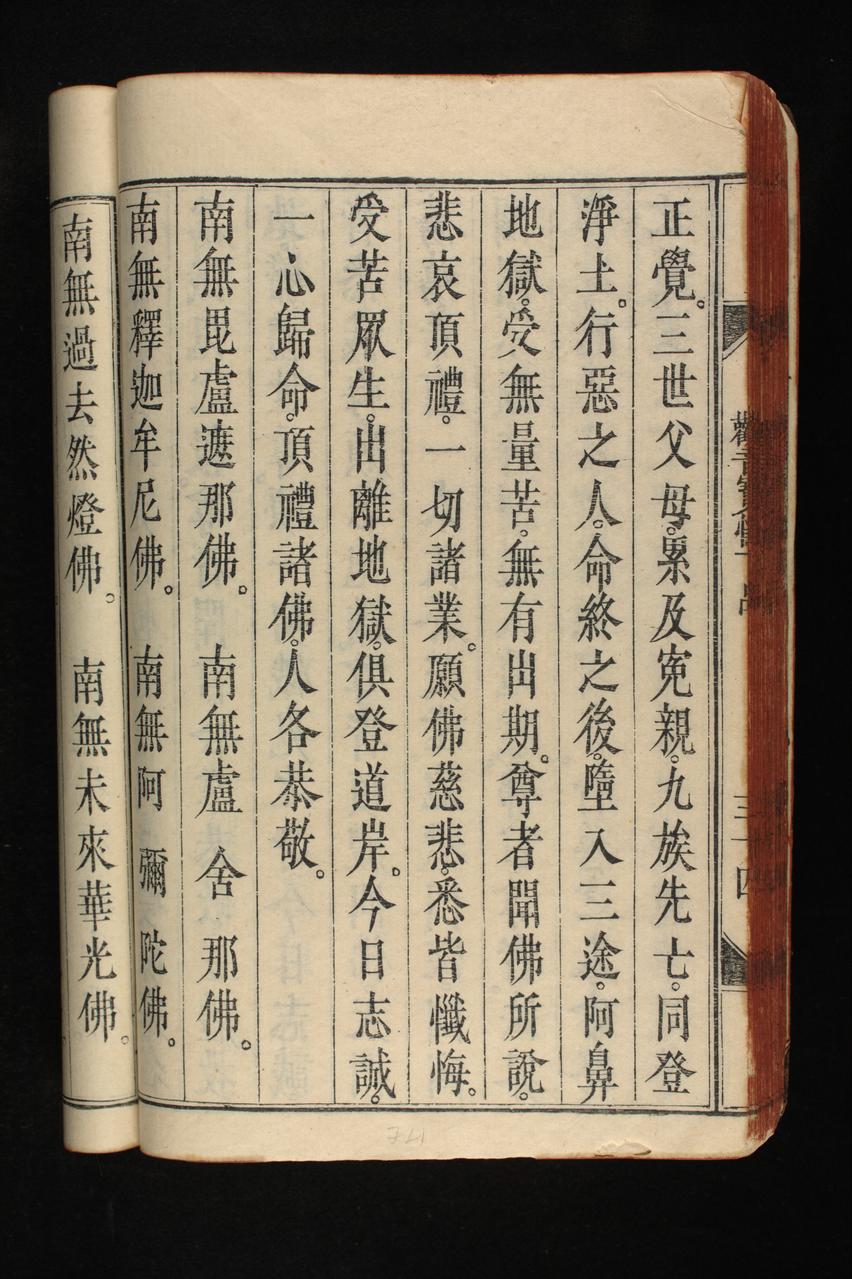 正覺。三世父母。累及寃親。九族先亡。同登
淨土。行惡之人。命終之後。墮入三途。阿鼻
地獄。受無量苦。無有出期。尊者聞佛所說。
悲哀頂禮。一切諸業。願佛慈悲。悉皆懺悔。
受苦眾生。出離地獄。俱登道岸。今日志誠。
一心歸命。頂禮諸佛。人各恭敬。
南無毘盧遮那佛。 南無盧舍那佛。
南無釋迦牟尼佛。 南無阿彌陀佛。
南無過去然燈佛。 南無未來華光佛。